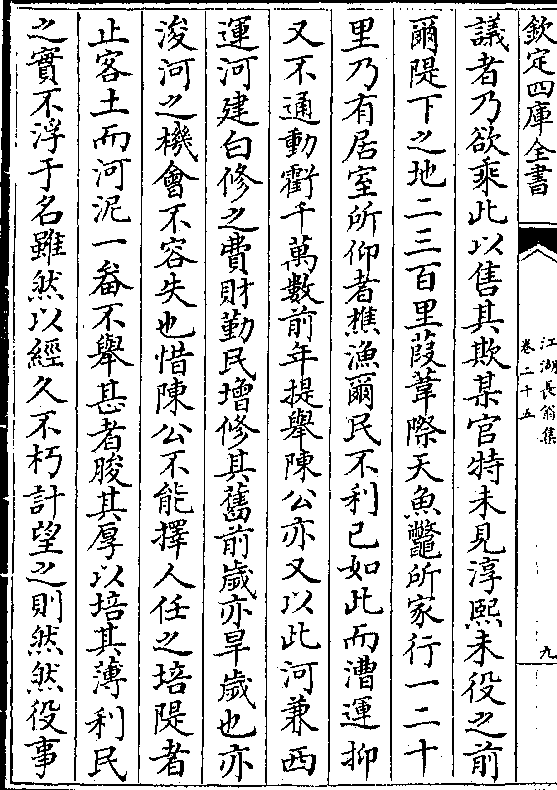 欽定四庫全書
江湖長翁集
卷二十五
九
議者乃欲乘此以售其欺某官特未見淳熙未役之前
爾隄下之地二三百里葭葦際天魚鼈所家行一二十
里乃有居室所仰者樵漁爾民不利已如此而漕運抑
又不通動衢千萬數前年提舉陳公亦又以此河兼西
運河建白修之費財勤民增修其舊前歲亦旱歲也亦
浚河之機會不容失也惜陳公不能擇人任之培隄者
止客土而河泥一畚不舉甚者朘其厚以培其薄利民
之實不浮于名雖然以經久不朽計望之則然然役事